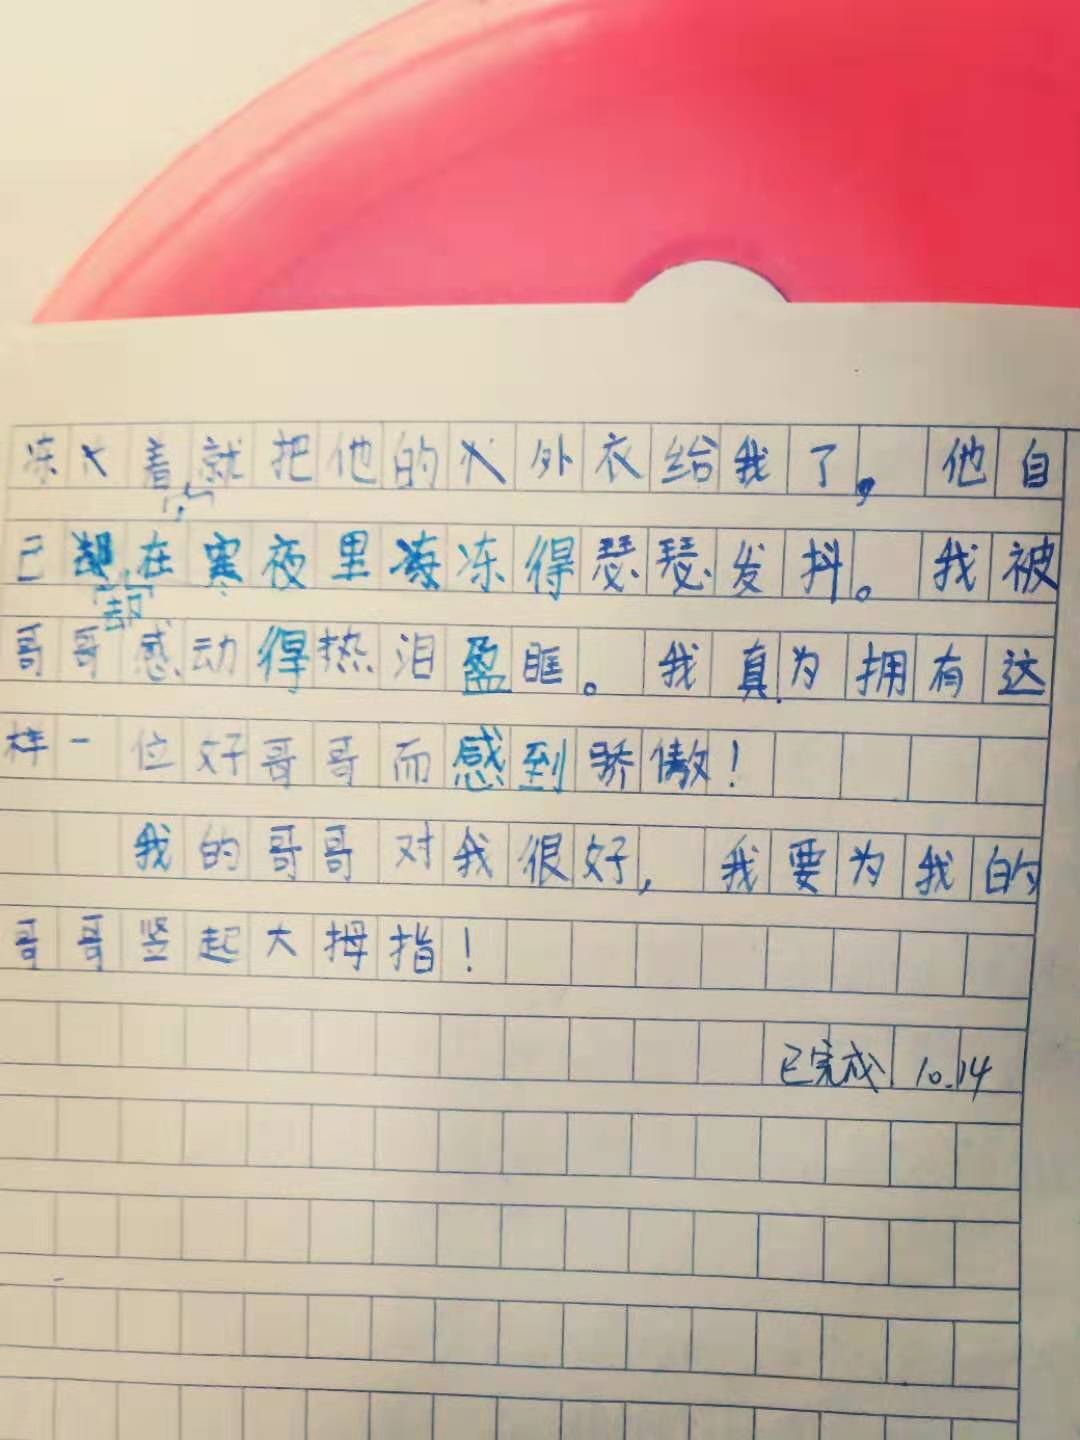 冻着,就把他的外衣给我了,他自
己却在寒夜里冻得瑟瑟发抖。我被
哥哥感动得热泪盈眶。我真为拥有这
样一位好哥哥而感到骄傲!
我的哥哥对我很好,我要为我的
哥哥竖起大拇指!
已完成 10.14